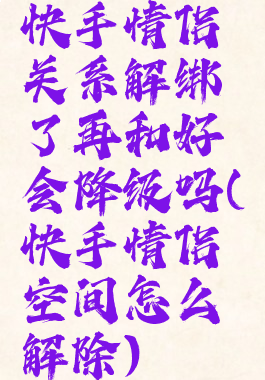 快手情侣
关系解绑
了再和好
会降级吗(
快手情侣
空间怎么
解除)